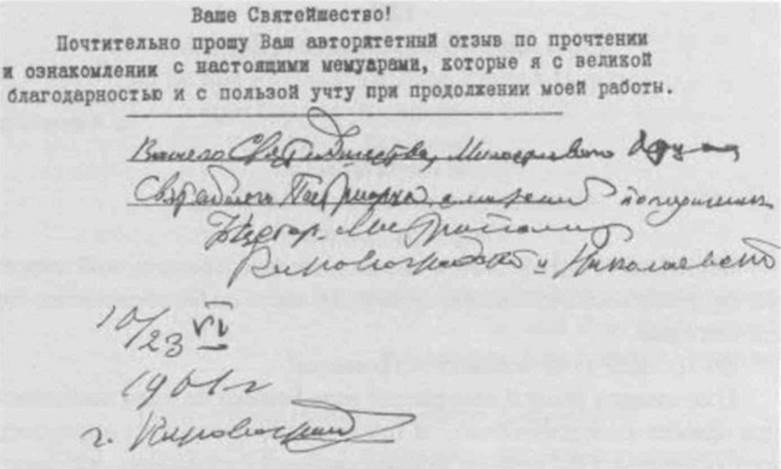 Ваше Святейшество!
Почтительно прошу Ваш авторитетный отзыв по прочтении
и ознакомлении с настоящими мемуарами, которые я с великой
благодарностью и с пользой учту при продолжении моей работы.
Вашего Святейшества, Милостивого
Святейшего Патриарха смиренный послушник
Нестор Митрополит
Кировоградский и Николаевский
10/23 VI
1961 г
г. Кировоград